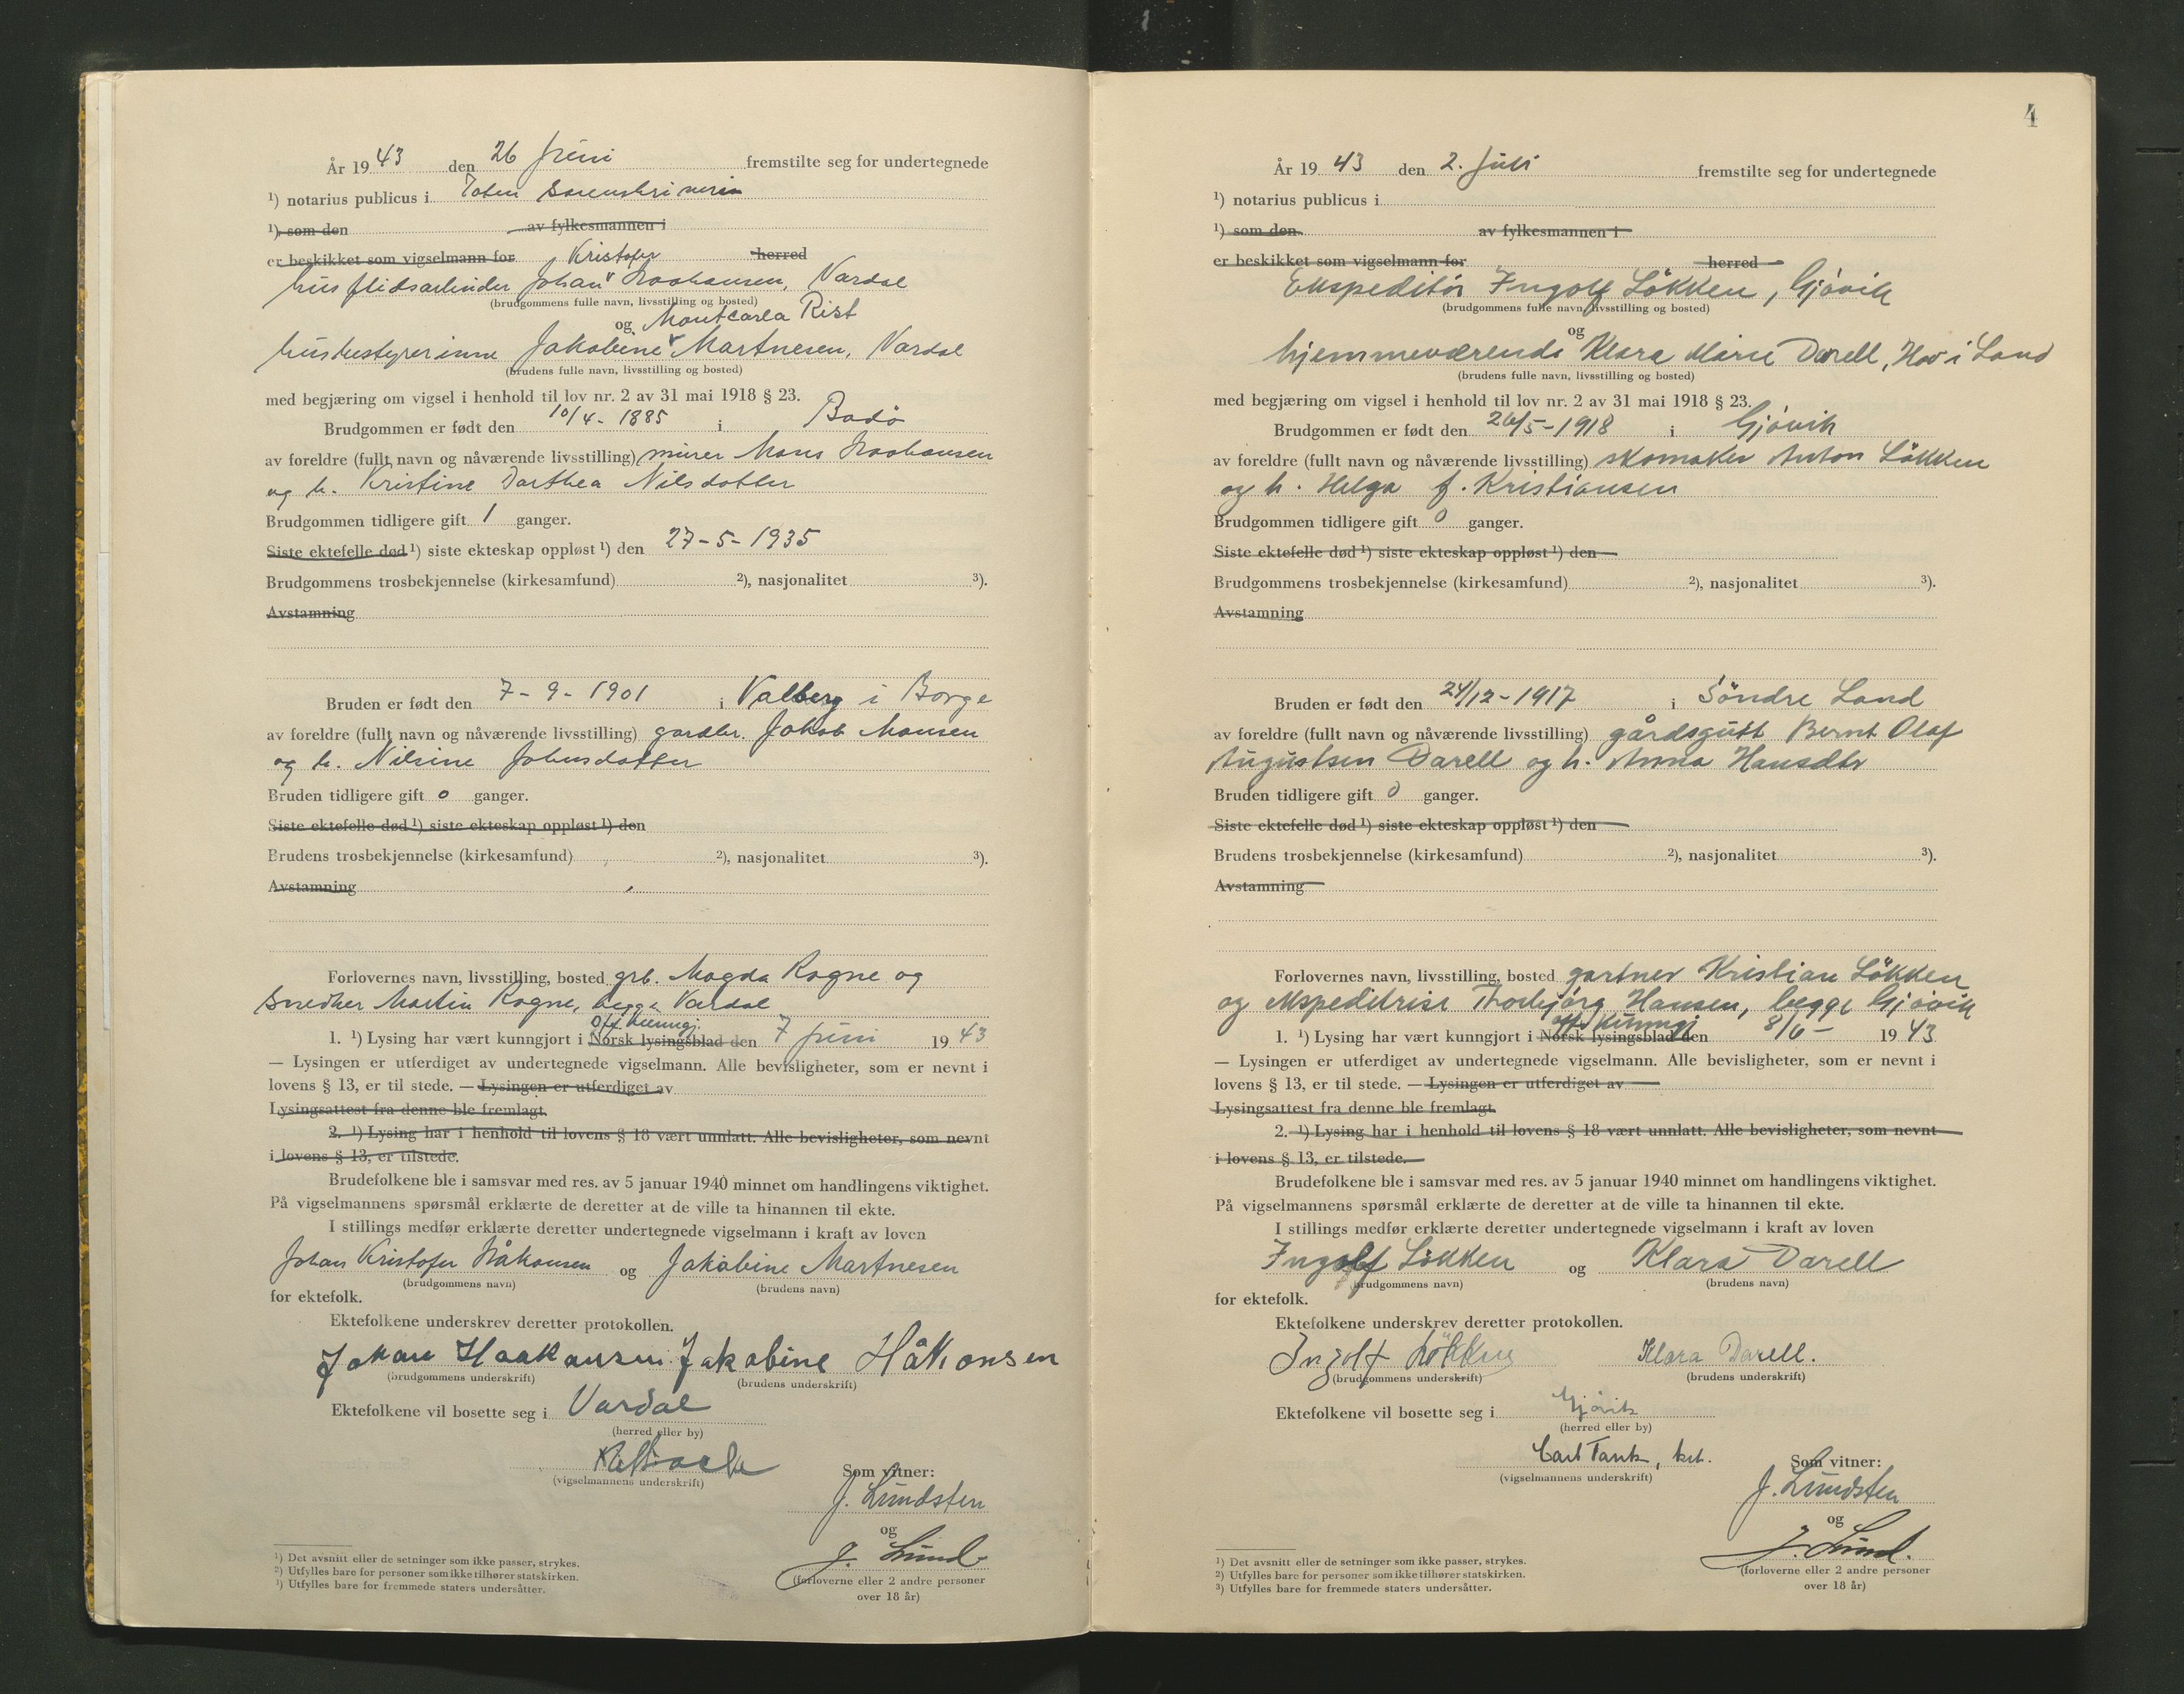 År 1943 den 26 juni fremstilte seg for undertegnede
¹) notarius publicus i Toten sorenskriveri
¹) som den av fylkesmannen i
er beskikket som vigselmann for herred
Kristofer
husflidsarbeider Johan Haakansen, Vardal
(brudgommens fulle navn, livsstilling og bosted)
og Montcarla Rist
husbestyrerinne Jakobine Martnesen, Vardal
(brudens fulle navn, livsstilling og bosted)
med begjæring om vigsel i henhold til lov nr. 2 av 31 mai 1918 § 23.
Brudgommen er født den 10/4- 1885 i Bodö
av foreldre (fullt navn og nåværende livsstilling) murer Mons Haakansen
og h. Kristine Darthea Nilsdatter
Brudgommen tidligere gift 1 ganger.
Siste ektefelle død ¹) siste ekteskap oppløst ¹) den 27-5-1935
Brudgommens trosbekjennelse (kirkesamfund) ²), nasjonalitet ³).
Avstamning
Bruden er født den 7-9-1901 i Valberg i Borge
av foreldre (fullt navn og nåværende livsstilling) gardbr. Jakob Monsen
og h. Nilsine Johnsdatter
Bruden tidligere gift 0 ganger.
Siste ektefelle død ¹) siste ekteskap oppløst ¹) den
Brudens trosbekjennelse (kirkesamfund) ²), nasjonalitet ³).
Avstamning
Forlovernes navn, livsstilling, bosted grb. Magda Rogne og
snedker Martin Rogne, begge Vardal
Off. kunngj.
1. ¹) Lysing har vært kunngjort i Norsk lysingsblad den 7 juni 1943
— Lysingen er utferdiget av undertegnede vigselmann. Alle bevisligheter, som er nevnt i
lovens § 13, er til stede. — Lysingen er utferdiget av
Lysingsattest fra denne ble fremlagt.
2. ¹) Lysing har i henhold til lovens § 18 vært unnlatt. Alle bevisligheter, som nevnt
i lovens § 13, er tilstede.
Brudefolkene ble i samsvar med res. av 5 januar 1940 minnet om handlingens viktighet.
På vigselmannens spørsmål erklærte de deretter at de ville ta hinannen til ekte.
I stillings medfør erklærte deretter undertegnede vigselmann i kraft av loven
Johan Kristofer Håkansen og Jakobine Martnesen
(brudgommens navn) (brudens navn)
for ektefolk.
Ektefolkene underskrev deretter protokollen.
Johan Haakansen Jakobine Håkonsen
(brudgommens underskrift) (brudens underskrift)
Ektefolkene vil bosette seg i Vardal
(herred eller by)
(vigselmannens underskrift)
Som vitner:
J. Lundsten
og
J. Lund
(forloverne eller 2 andre personer
over 18 år)
¹) Det avsnitt eller de setninger som ikke passer, strykes.
²) Utfylles bare for personer som ikke tilhører statskirken.
³) Utfylles bare for fremmede staters undersåtter.
4
År 1943 den 2. juli fremstilte seg for undertegnede
¹) notarius publicus i
¹) som den av fylkesmannen i
er beskikket som vigselmann for herred
Ekspeditör Ingolf Lökken, Gjövik
(brudgommens fulle navn, livsstilling og bosted)
og
hjemmeværende Klara Marie Darell, Hov i Land
(brudens fulle navn, livsstilling og bosted)
med begjæring om vigsel i henhold til lov nr. 2 av 31 mai 1918 § 23.
Brudgommen er født den 26/5-1918 i Gjövik
av foreldre (fullt navn og nåværende livsstilling) skomaker Anton Lökken
og h. Helga f. Kristiansen
Brudgommen tidligere gift 0 ganger.
Siste ektefelle død ¹) siste ekteskap oppløst ¹) den
Brudgommens trosbekjennelse (kirkesamfund) ²), nasjonalitet ³).
Avstamning
Bruden er født den 24/12-1917 i Söndre Land
av foreldre (fullt navn og nåværende livsstilling) gårdsgutt Bernt Olaf
Augustsen Darell og h. Anna Hansdtr
Bruden tidligere gift 0 ganger.
Siste ektefelle død ¹) siste ekteskap oppløst ¹) den
Brudens trosbekjennelse (kirkesamfund) ²), nasjonalitet ³).
Avstamning
Forlovernes navn, livsstilling, bosted gartner Kristian Lökken
og ekspeditrise Thorbjörg Hansen, begge Gjövik
off. kunngj
1. ¹) Lysing har vært kunngjort i Norsk lysingsblad den 8/6- 1943
— Lysingen er utferdiget av undertegnede vigselmann. Alle bevisligheter, som er nevnt i
lovens § 13, er til stede. — Lysingen er utferdiget av
Lysingsattest fra denne ble fremlagt.
2. ¹) Lysing har i henhold til lovens § 18 vært unnlatt. Alle bevisligheter, som nevnt
i lovens § 13, er tilstede.
Brudefolkene ble i samsvar med res. av 5 januar 1940 minnet om handlingens viktighet.
På vigselmannens spørsmål erklærte de deretter at de ville ta hinannen til ekte.
I stillings medfør erklærte deretter undertegnede vigselmann i kraft av loven
Ingolf Lökken og Klara Darell
(brudgommens navn) (brudens navn)
for ektefolk.
Ektefolkene underskrev deretter protokollen.
Ingolf Lökken Klara Darell.
(brudgommens underskrift) (brudens underskrift)
Ektefolkene vil bosette seg i Gjövik
(herred eller by)
Carl Tank, kst.
(vigselmannens underskrift)
Som vitner:
J. Lundsten
og
J. Lund.
(forloverne eller 2 andre personer
over 18 år)
¹) Det avsnitt eller de setninger som ikke passer, strykes.
²) Utfylles bare for personer som ikke tilhører statskirken.
³) Utfylles bare for fremmede staters undersåtter.